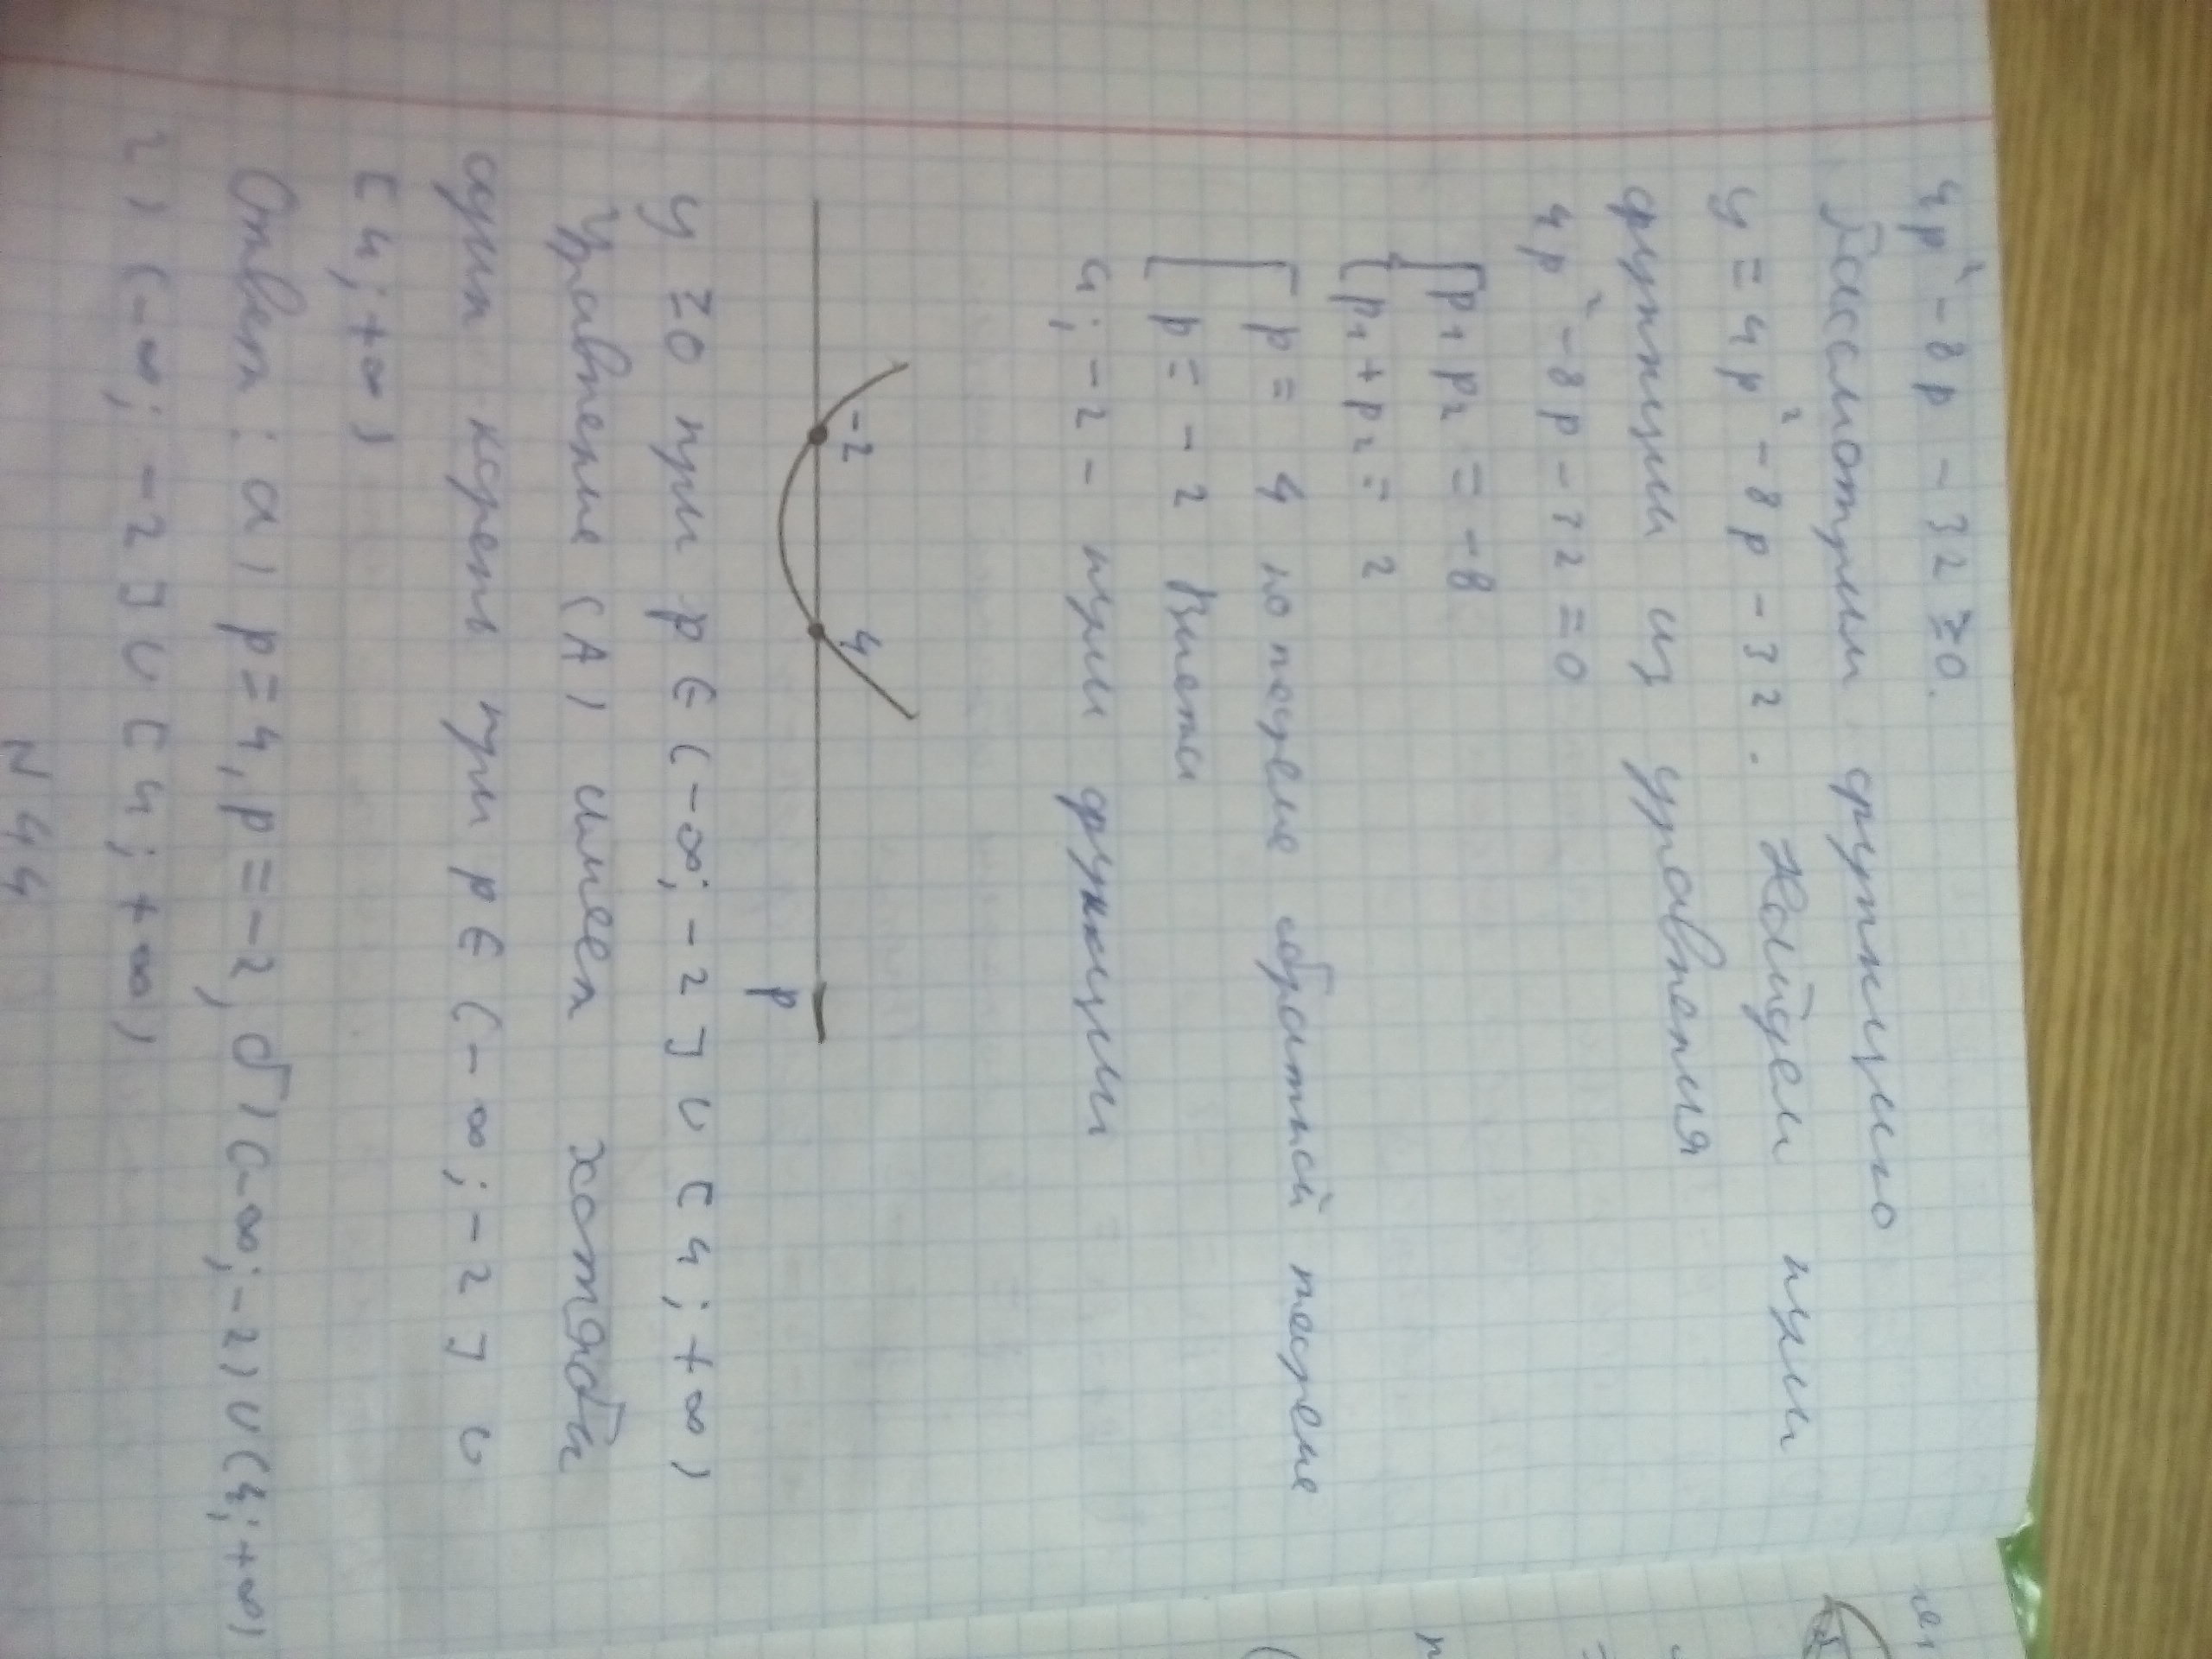 4p² - 8p - 32 ≥ 0.
Рассмотрим функцию
y = 4p² - 8p - 32. Найдем нули
функции из уравнения
4p² - 8p - 32 = 0
p₁p₂ = -8
p₁ + p₂ = 2
p = 4 по теореме обратной теореме
p = -2 Виета
4; -2 - нули функции
-2 4
p
y ≥ 0 при p ∈ (-∞; -2] ∪ [4; +∞)
Уравнение (A) имеет хотябы
один корень при p ∈ (-∞; -2] ∪
[4; +∞)
Ответ: а) p = 4, p = -2, б) (-∞; -2) ∪ (4; +∞)
2) (-∞; -2] ∪ [4; +∞)
N 44